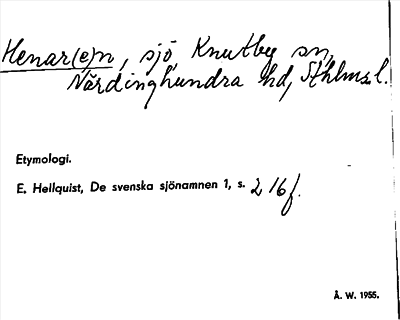 Henar(e)n, sjö, Knutby sn,
Närdinghundra hd, Sthlms l.
Etymologi.
E. Hellquist, De svenska sjönamnen 1, s. 216 f.
Å. W. 1955.